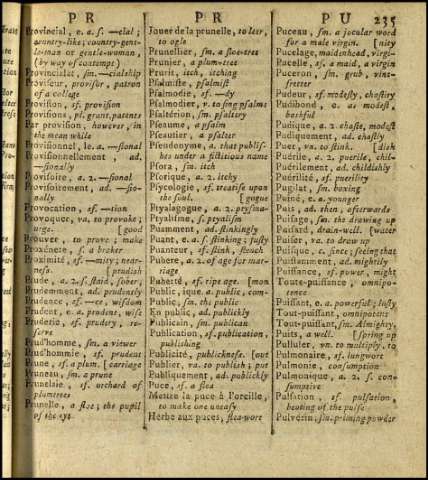 PR
PR
PU
235
Provincial, e. a. ſ. —cial;
country-like; country-gent-
le-man or gentle-woman,
(by way of contempt)
Provincialat, ſm. —cialſhip
Proviſeur, proviſor, patron
of a college
Proviſion, ſf. proviſion
Proviſions, pl. grant, parents
Par proviſion, however, in
the mean while
Proviſionnel, le. a. —ſional
Proviſionnellement, ad.
—ſionally
Proviſoire, a. 2. —ſional
Proviſoirement, ad. —ſio-
nally
Provocation, ſf. —tion
Provoquer, va. to provoke;
urge. [good
Prouver, to prove; make
Proxénete, ſ. a broker
Proximité, ſf. —mity; near-
neſs. [prudiſh
Prude, a. 2. ſ. ſtaid, ſober,
Prudemment, ad. prudently
Prudence, ſf. —ce, wiſdom
Prudent, e. a. prudent, wiſe
Pruderie, ſf. prudery, re-
ſerve
Prud'homme, ſm. a viewer
Prud'hommie, ſf. prudent
Prune, ſf. a plum. [carriage
Pruneau, ſm. a prune
Prunelaie, ſf. orchard of
plumtrees
Prunelle, a ſloe; the pupil
of the eye
Jouer de la prunelle, to leer,
to ogle
Prunellier, ſm. a ſloe-tree
Prunier, a plum-tree
Prurit, itch, itching
Pſalmiſte, pſalmiſt
Pſalmodie, ſf. —dy
Pſalmodier, v. to ſing pſalms
Pſaltérion, ſm. pſaltery
Pſeaume, a pſalm
Pſeautier, a pſalter
Pſeudonyme, a. that publiſ-
hes under a fictitious name
Pſora, ſm. itch
Pſorique, a. 2. itchy
Pſycologie, ſf. treatiſe upon
the ſoul. [gogue
Ptyalagogue, a. 2. ptyſma-
Ptyaliſme, ſ. ptyaliſm
Puamment, ad. ſtinkingly
Puant, e. a. ſ. ſtinking; fuſty
Puanteur, ſf. ſtink, ſtench
Pubere, a. 2. of age for mar-
riage
Puberté, ſf. ripe age. [mon
Public, ique, a. public, com-
Public, ſm. the public
En public, ad. publickly
Publicain, ſm. publican
Publication, ſf. publication,
publiſhing
Publicité, publickneſs. [out
Publier, va. to publiſh; put
Publiquement, ad. publickly
Puce, ſf. a flea
Mettre la puce à l'oreille,
to make one uneaſy
Herbe aux puces, flea-wort
Puceau, ſm. a jocular word
for a male virgin. [nity
Pucelage, maidenhead, virgi-
Pucelle, ſf. a maid, a virgin
Puceron, ſm. grub, vine-
fretter
Pudeur, ſf. modeſty, chaſtiry
Pudibond, e. as modeſt,
baſhful
Pudique, a. 2. chaſte, modeſt
Pudiquement, ad. chaſtly
Puer, va. to stink. [diſh
Puérile, a. 2. puerile, chil-
Puérilement, ad. childiſhly
Puérilité, ſf. puerility
Pugilat, ſm. boxing
Puîné, e. a. younger
Puis, ad. then, afterwards
Puiſage, ſm. the drawing up
Puiſard, drain-well. [water
Puiſer, va. to draw up
Puiſque, c. ſince; ſeeing that
Puiſſamment, ad. mightily
Puiſſance, ſf. power, might
Toute-puiſſance, omnipo-
tence
Puiſſant, e. a. powerful; luſty
Tout-puiſſant, omnipotent
Tout-puiſſant, ſm. Almighty,
Puits, a well. [ſpring up
Pulluler, vn. to multiply, to
Pulmonaire, ſf. lungwort
Pulmonie, conſumption
Pulmonique, a. 2. ſ. con-
ſumptive
Pulſation, ſf. pulſation,
beating of the pulſe
Pulvérin, ſm. priming powder